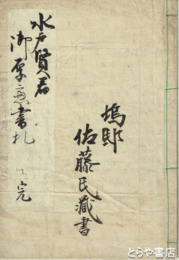 水戸賢君
御厚意書札
完
塢邸
佐藤民蔵書
とらや書店